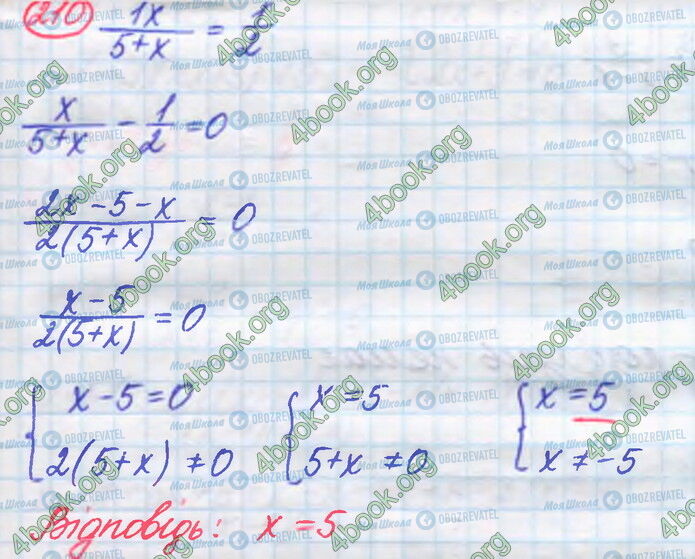 210 1x/(5+x) = 1/2
x/(5+x) - 1/2 = 0
(2x-5-x)/(2(5+x)) = 0
(x-5)/(2(5+x)) = 0
{ x-5=0 { x=5 { x=5
2(5+x) ≠0 5+x ≠0 x≠-5
Відповідь: x=5
4book.org
Моя Школа OBOZREVATEL